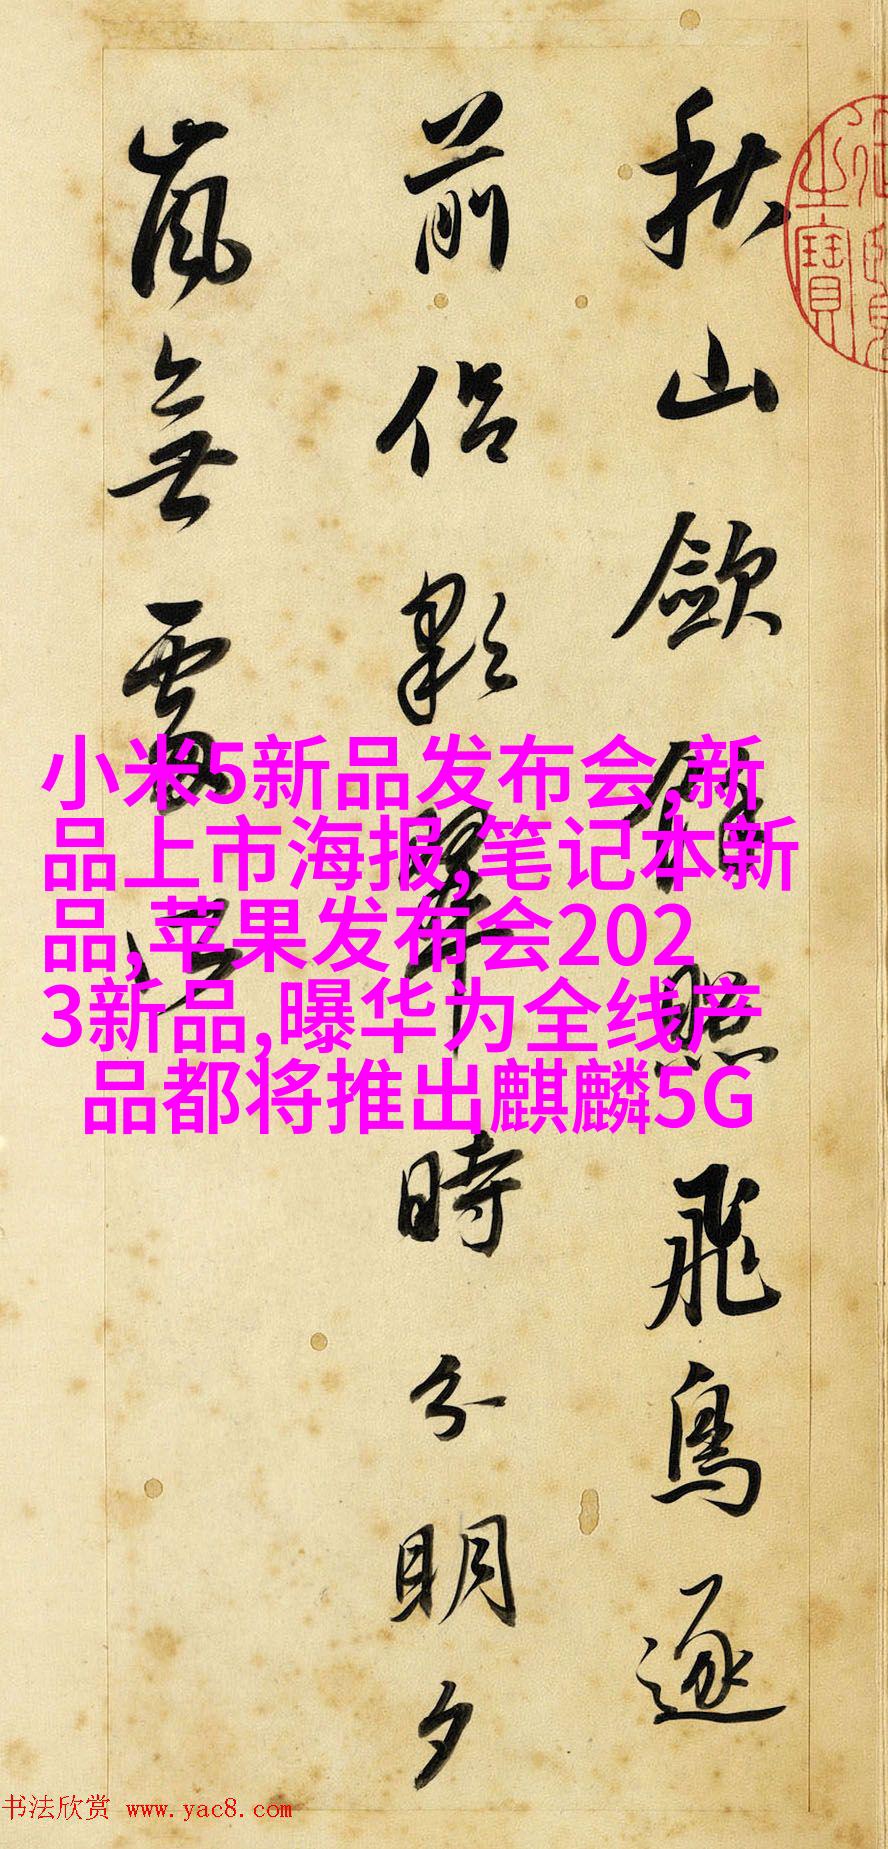 秋山歛餘照飛鳥逐
前侣彩翠時分明夕
嵐無處所
小米5新品发布会,新
品上市海报,笔记本新
品,苹果发布会202
3新品,曝华为全线产
品都将推出麒麟5G
之寶
书法欣赏 www.yac8.com